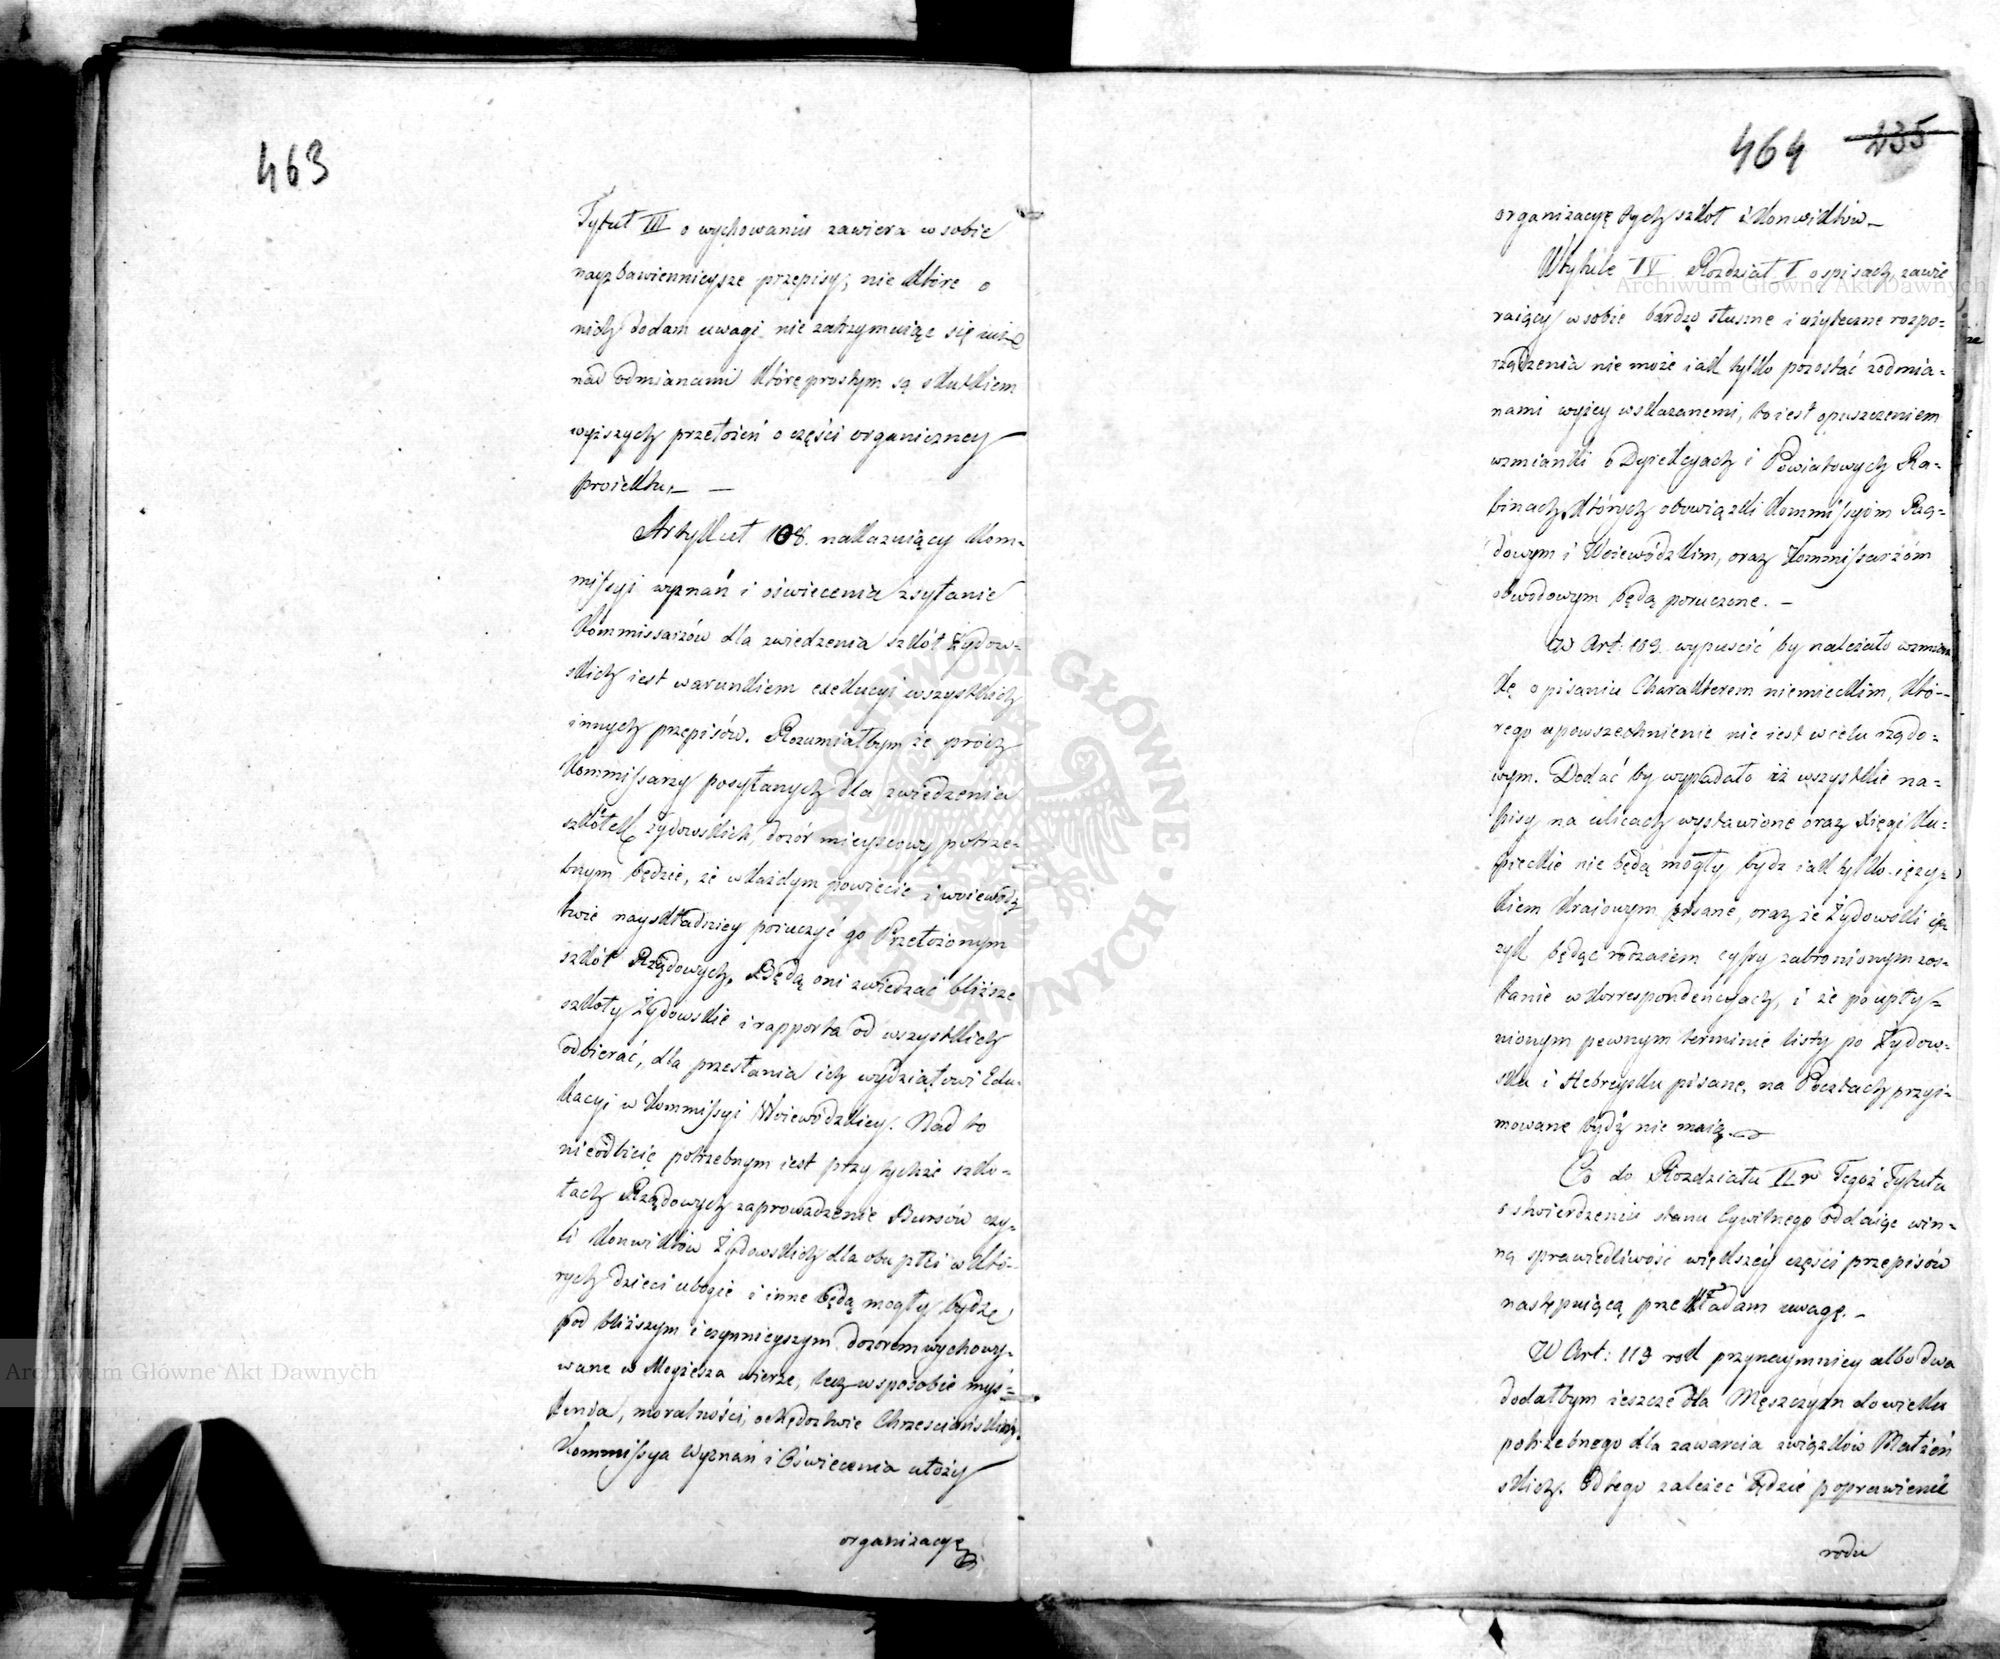 463
Tytuł III o wychowaniu zawiera w sobie
nayzbawiennieysze przepisy; nie które o
nich dodam uwagi nie zatrzymuiąc się
nad odmianami które prostym są skutkiem
wyższych przełożeń o części organiczney
proiektu. —
Artykuł 108. nakazuiący Kom-
missyi wyznań i oświecenia zsyłanie
Kommissarzów dla zwiedzenia szkół Żydow-
skich iest warunkiem exekucyi wszystkich
innych przepisów. Rozumiałbym że prócz
Kommissarzy posyłanych dla zwiedzenia
szkółek żydowskich, dozór mieyscowy potrze-
bnym będzie, że w każdym powiecie i woiewódz
twie naysk­ładniey poruczyć go Przełożonym
szkół Rządowych. Będą oni zwiedzać bliższe
szkoły Żydowskie i rapporta od wszystkich
odbierać, dla przesłania ich wydziałowi Edu-
kacyi w Kommissyi Woiewódzkiey. Nad to
nieodbicie potrzebnym iest przy tychże szko-
łach Rządowych zaprowadzenie Bursów czy-
li Konwiktów Żydowskich dla obu płci w któ-
rych dzieci ubogie i inne będą mogły bydź
pod bliższym i czynnieyszym dozorem wychowy-
wane w Moyżesza wierze, lecz w sposobie myś-
lenia, moralności, ochędoztwie Chrześciańskim.
Kommissya Wyznań i Oświecenia ułoży
organizacyę
464 235
organizacyę tych szkół i Konwiktów —
W tytule IV Rozdział I o spisach, zawie
raiący w sobie bardzo słuszne i użyteczne rozpo-
rządzenia nie może iak tylko pozostać z odmia-
nami wyżey wskazanemi, to iest opuszczeniem
wzmianki o Dyrekcyach i Powiatowych Ra-
binach, których obowiązki Kommissyom Rzą-
dowym i Woiewódzkim, oraz Kommissarzóm
obwodowym będą poruczone. —
W Art: 109. wypuścić by należało wzmian
kę o pisaniu Charakterem niemieckim, któ-
rego upowszechnienie nie iest w celu rządo-
wym. Dodać by wypadało iż wszystkie na-
pisy na ulicach wystawione oraz xięgi ku-
pieckie nie będą mogły bydź iak tylko ięzy-
kiem kraiowym pisane, oraz że Żydowski ię-
zyk będąc rodzaiem cyfry zabronionym zos-
tanie w korrespondencyach, i że po upły-
nionym pewnym terminie listy po Żydow-
sku i Hebraysku pisane, na Pocztach przyi-
mowane bydź nie maią.
Co do Rozdziału II w Tegoż Tytułu
o stwierdzeniu stanu Cywilnego oddaiąc win-
ną sprawiedliwość większéy części przepisów
następuiącą przekładam uwagę. —
W Art: 113 rok przynaymniey albo dwa
dodałbym ieszcze dla Męszczyzn do wieku
potrzebnego dla zawarcia związków Małżeń
skich. Od tego zależeć będzie poprawienie
rodu
Archiwum Główne Akt Dawnych
Archiwum Główne Akt Dawnych
ARCHIWUM GŁÓWNE AKT DAWNYCH